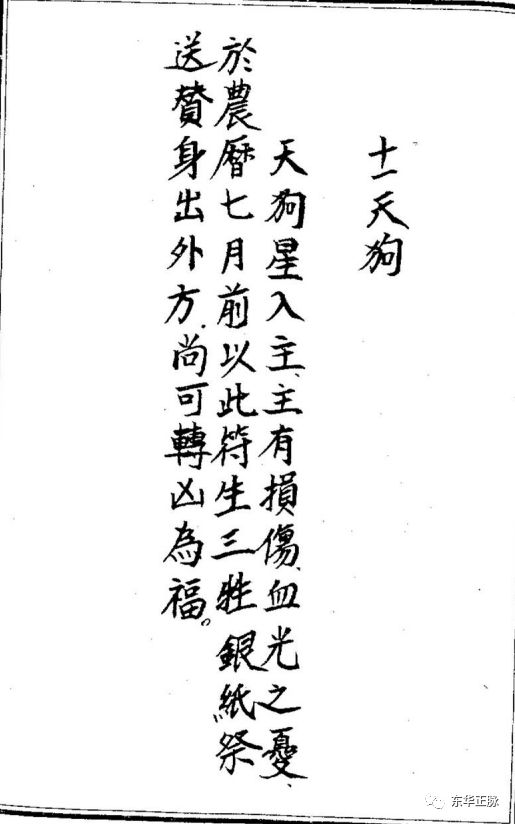 十一天狗
天狗星入主、主有損傷、血光之憂、
於農曆七月前以此符生三牲銀紙祭
送贊身出外方、尚可轉凶為福。
东华正脉